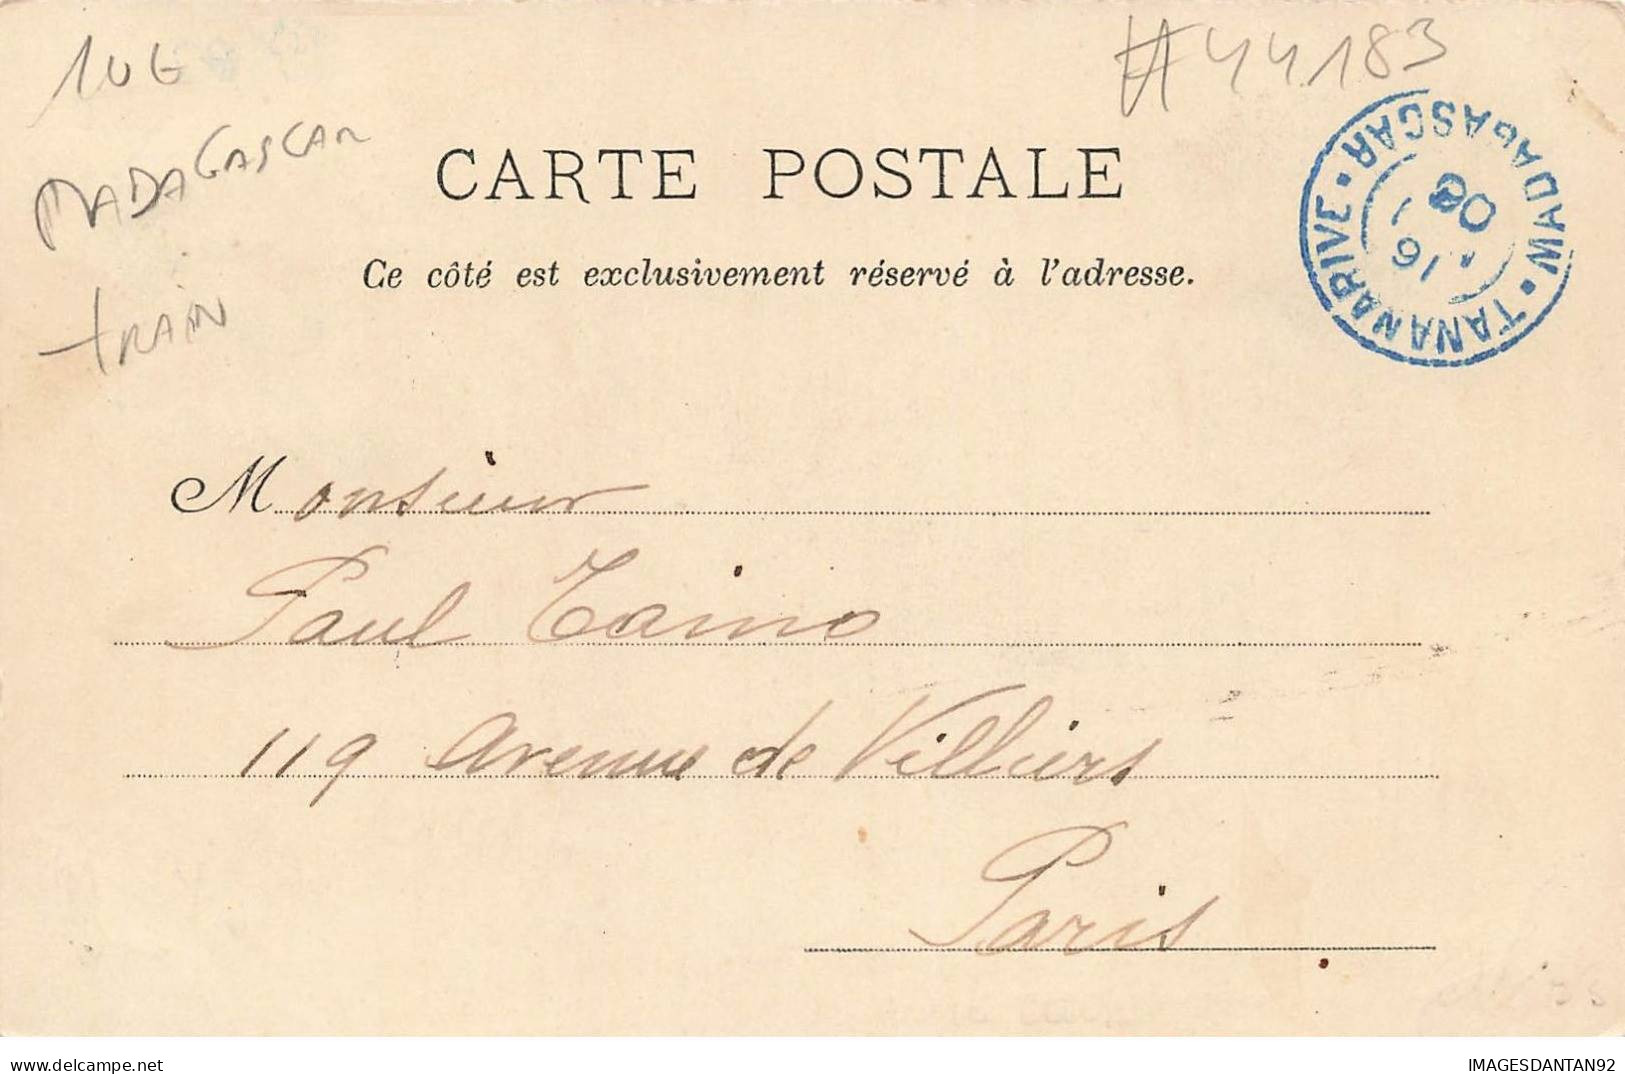 10G
#44183
MADAGASCAR
TRAIN
CARTE POSTALE
Ce côté est exclusivement réservé à l'adresse.
TANANARIVE • MADAGASCAR •
16
Monsieur
Paul Taino
119 Avenue de Villiers
Paris
www.delcampe.net
IMAGESDANTAN92